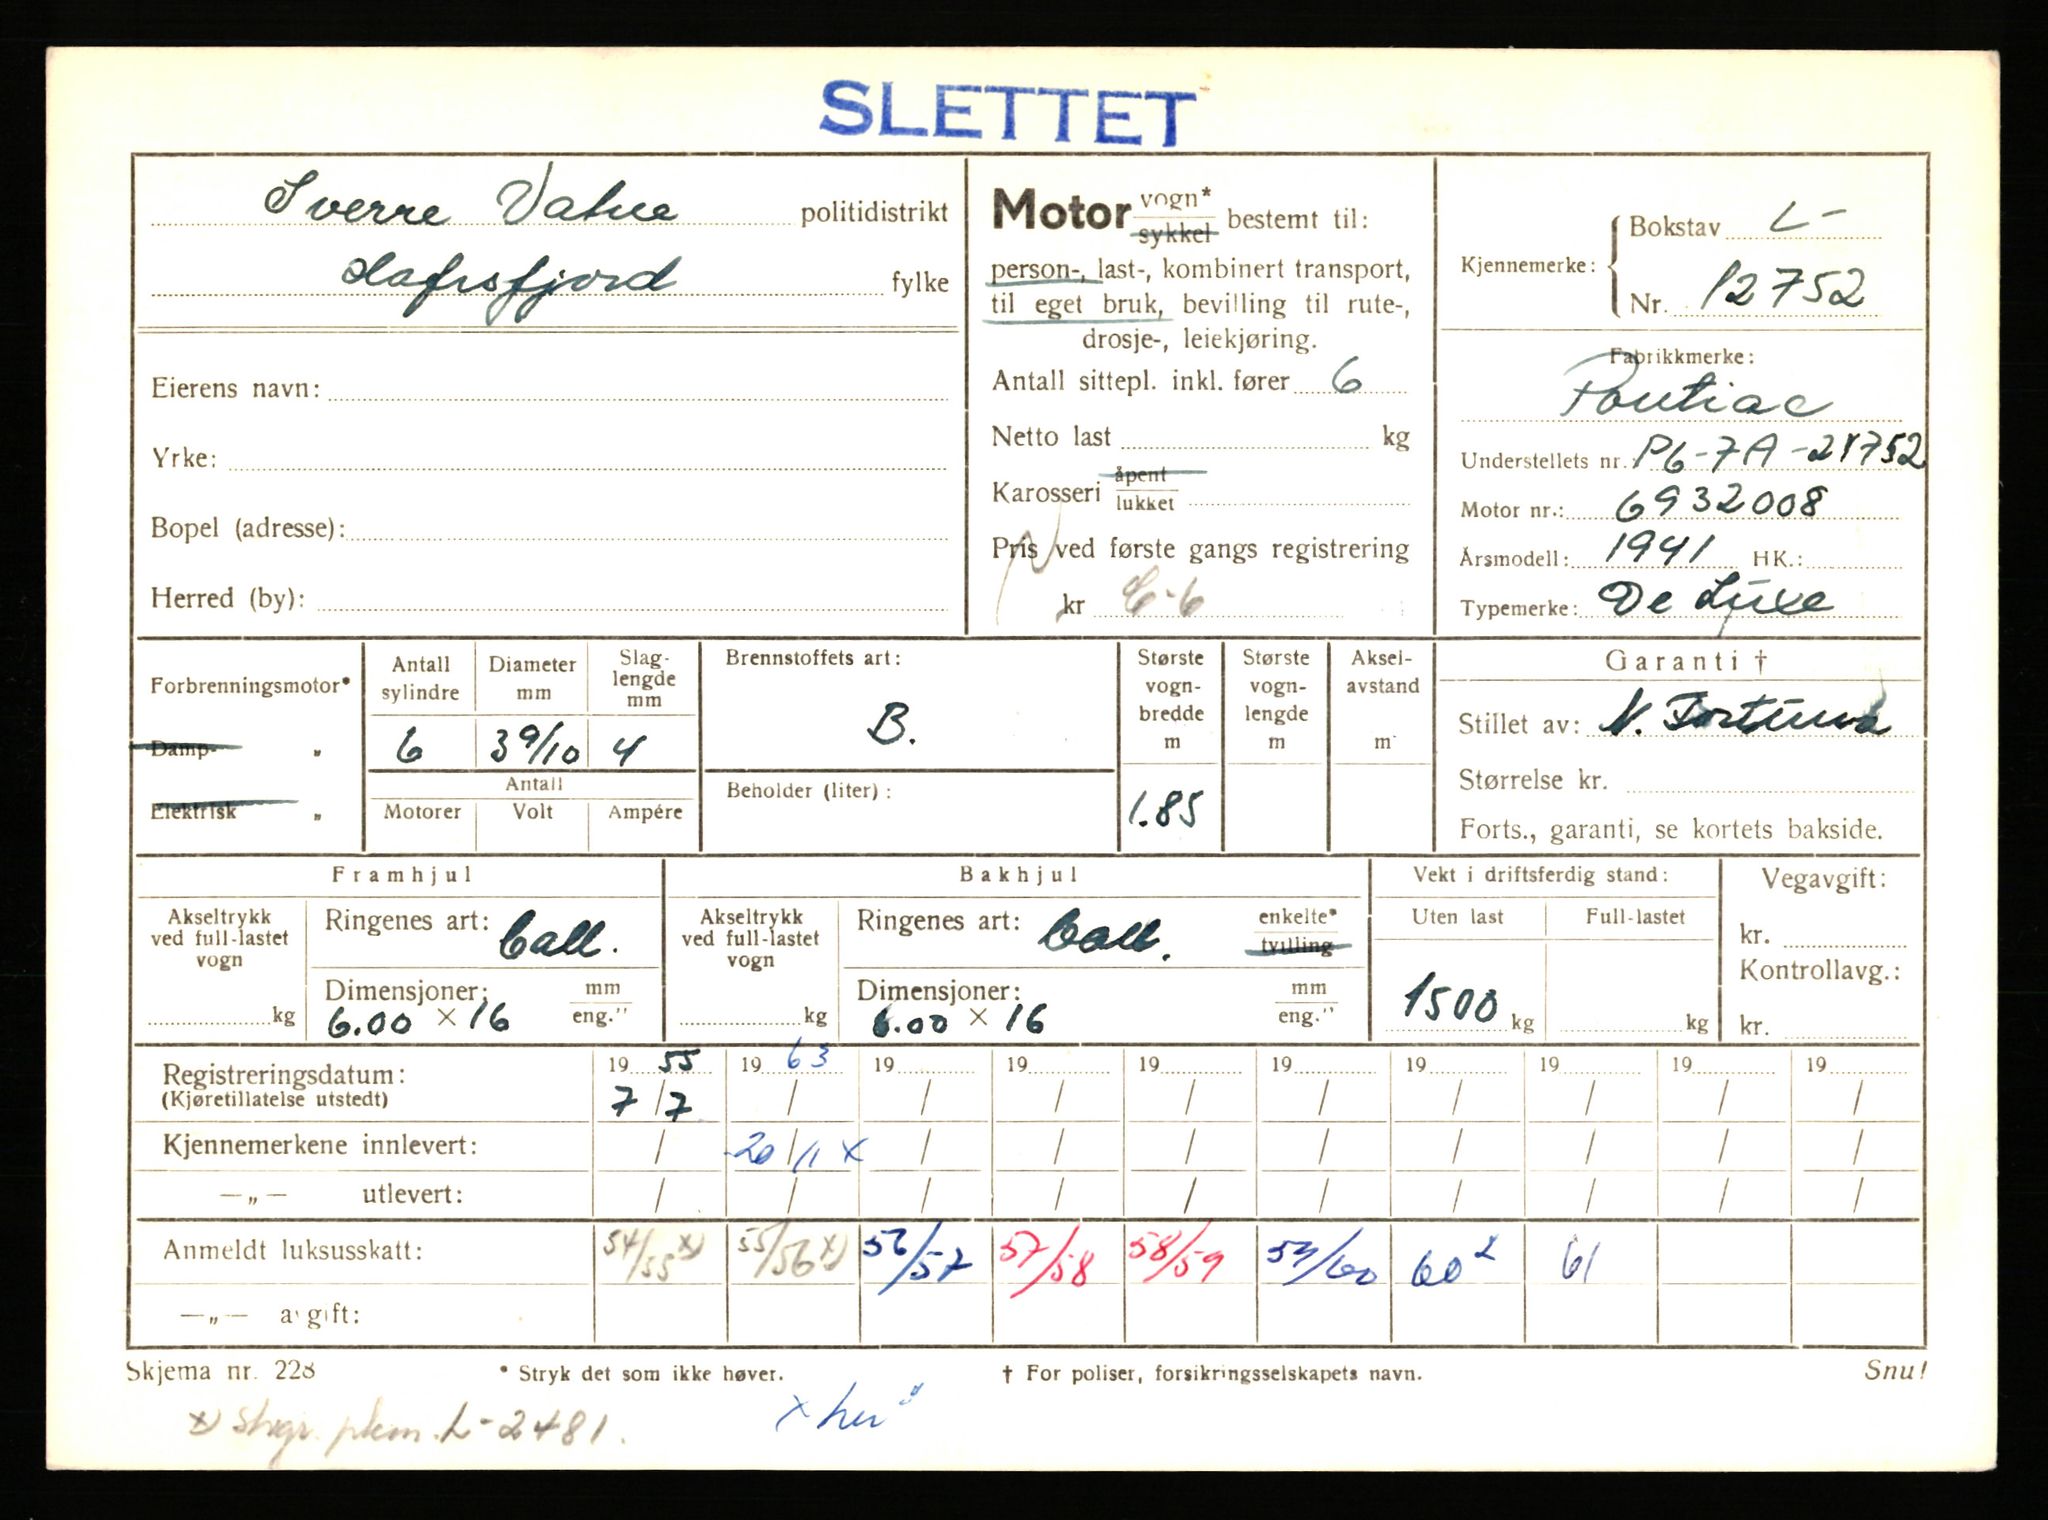 SLETTET
Sverre Vatne politidistrikt
Hafrsfjord fylke
Eierens navn:
Yrke:
Bopel (adresse):
Herred (by):
Motor vogn* sykkel bestemt til:
person-, last-, kombinert transport,
til eget bruk, bevilling til rute-,
drosje-, leiekjøring.
Antall sittepl. inkl. fører 6
Netto last kg
Karosseri åpent lukket
Pris ved første gangs registrering
kr
Kjennemerke: Bokstav L-
Nr. 12752
Fabrikkmerke:
Pontiac
Understellets nr. P6-7A-21752
Motor nr.: 6932008
Årsmodell: 1941 HK.:
Typemerke: De Luxe
Forbrenningsmotor*
Damp- „
Elektrisk „
Antall sylindre
6
Diameter mm
3 9/10
Slag-lengde mm
4
Antall
Motorer Volt Ampére
Brennstoffets art:
B.
Beholder (liter):
Største vogn-bredde m
1.85
Største vogn-lengde m
Aksel-avstand m
Garanti †
Stillet av: N. Fortuna
Størrelse kr.
Forts., garanti, se kortets bakside.
Framhjul
Akseltrykk ved full-lastet vogn
kg
Ringenes art: Ball.
Dimensjoner: mm eng."
6.00 × 16
Bakhjul
Akseltrykk ved full-lastet vogn
kg
Ringenes art: Ball. enkelte* tvilling
Dimensjoner: mm eng."
6.00 × 16
Vekt i driftsferdig stand:
Uten last Full-lastet
1500 kg kg
Vegavgift:
kr.
Kontrollavg.:
kr.
Registreringsdatum: 19 55 19 63 19 19 19 19 19 19 19 19
(Kjøretillatelse utstedt) 7/7 / / / / / / / / /
Kjennemerkene innlevert: / 20/11 x / / / / / / / /
—„— utlevert: / / / / / / / / / /
Anmeldt luksusskatt: 54/55 x) 55/56 x) 56/57 57/58 58/59 59/60 60 x 61
—„— avgift:
Skjema nr. 228 * Stryk det som ikke høver. † For poliser, forsikringsselskapets navn. Snu!
x) L-2481.
x her